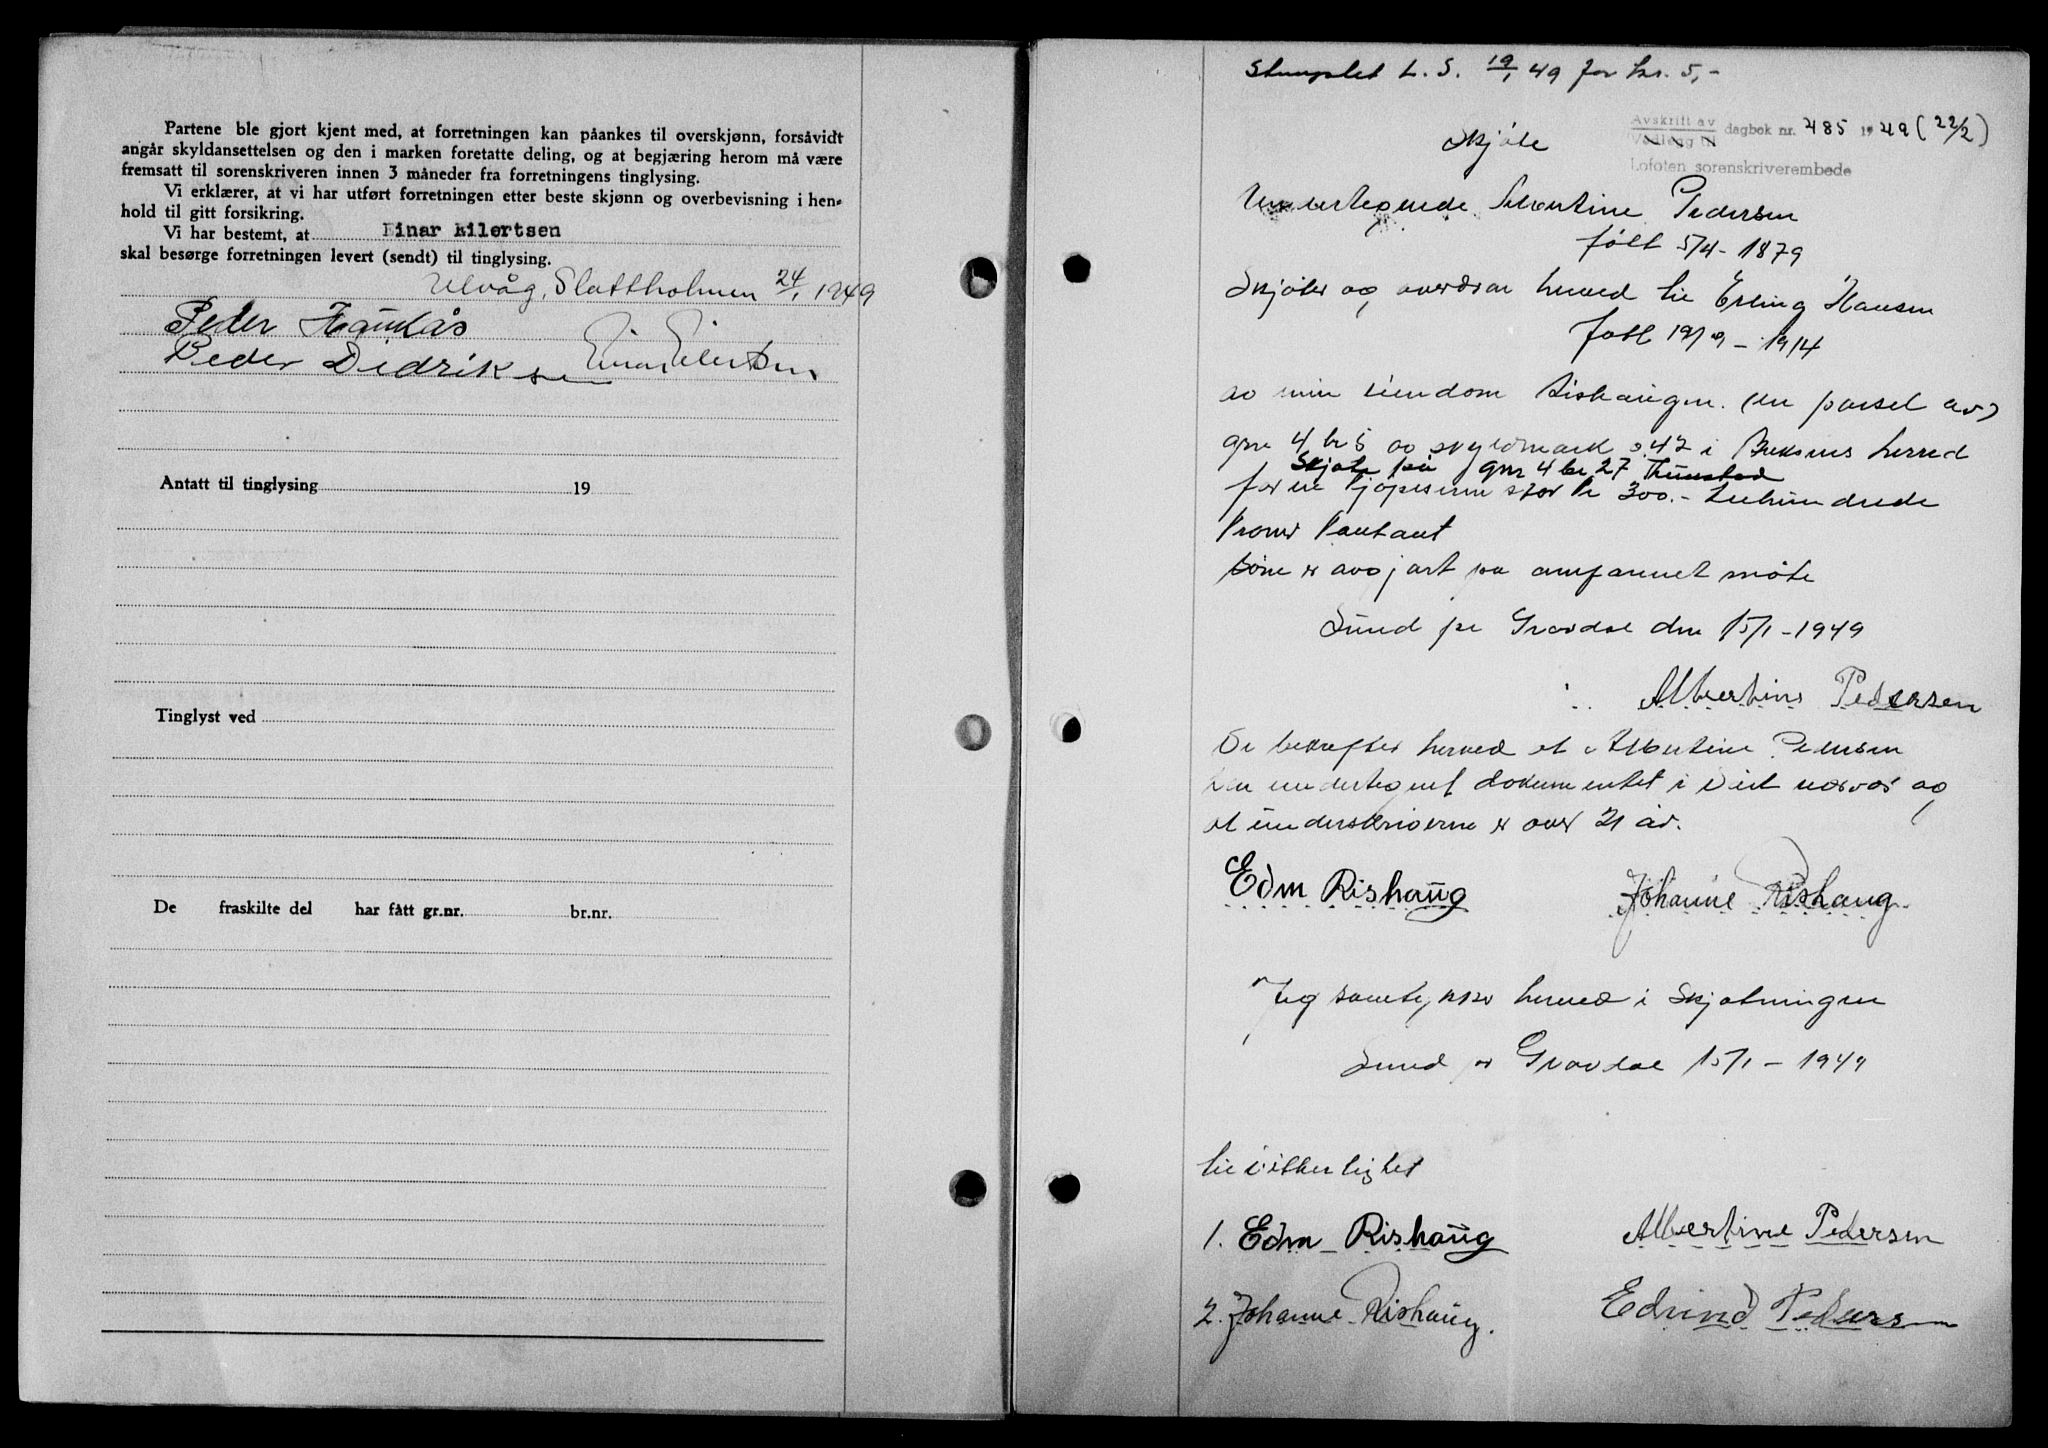 Partene ble gjort kjent med, at forretningen kan påankes til overskjønn, forsåvidt
angår skyldansettelsen og den i marken foretatte deling, og at begjæring herom må være
fremsatt til sorenskriveren innen 3 måneder fra forretningens tinglysing.
Vi erklærer, at vi har utført forretningen etter beste skjønn og overbevisning i hen-
hold til gitt forsikring.
Vi har bestemt, at Einar Eilertsen
skal besørge forretningen levert (sendt) til tinglysing.
Ulvåg, Slottholmen 24/1 1949
Peder Haukås
Peder Didriksen Einar Eilertsen
Antatt til tinglysing 19
Tinglyst ved
De fraskilte del har fått gr.nr. br.nr.
Stemplet L. S. 19/1 49 for kr. 5,-
Avskrift av
Vedlegg til
dagbok nr. 485 1949 (22/2)
Lofoten sorenskriverembede
Skjøte
Undertegnede Albertine Pedersen
født 5/4-1879
Skjøter og overdrar herved til Erling Hansen
født 19/9-1914
av min eiendom Rishaugen. (en parsel av)
gnr 4 br 5 av skyldmark 0.42 i Buksnes herred
Skjøte på gnr 4 br. 27
for en kjøpesum stor kr 300.- trehundrede
kroner kontant
som er avgjort på omforenet måte
Sund pr Gravdal den 15/1-1949
Albertine Pedersen
Vi bekrefter herved at Albertine Pedersen
har undertegnet dokumentet i vårt nærvær og
at underskriverne er over 21 år.
Edm Rishaug Johanne Rishaug
Jeg samtykker herved i Skjøtningen
Sund pr Gravdal 15/1-1949
til vitterlighet
1. Edm Rishaug Albertine Pedersen
2. Johanne Rishaug. Edvind Pedersen